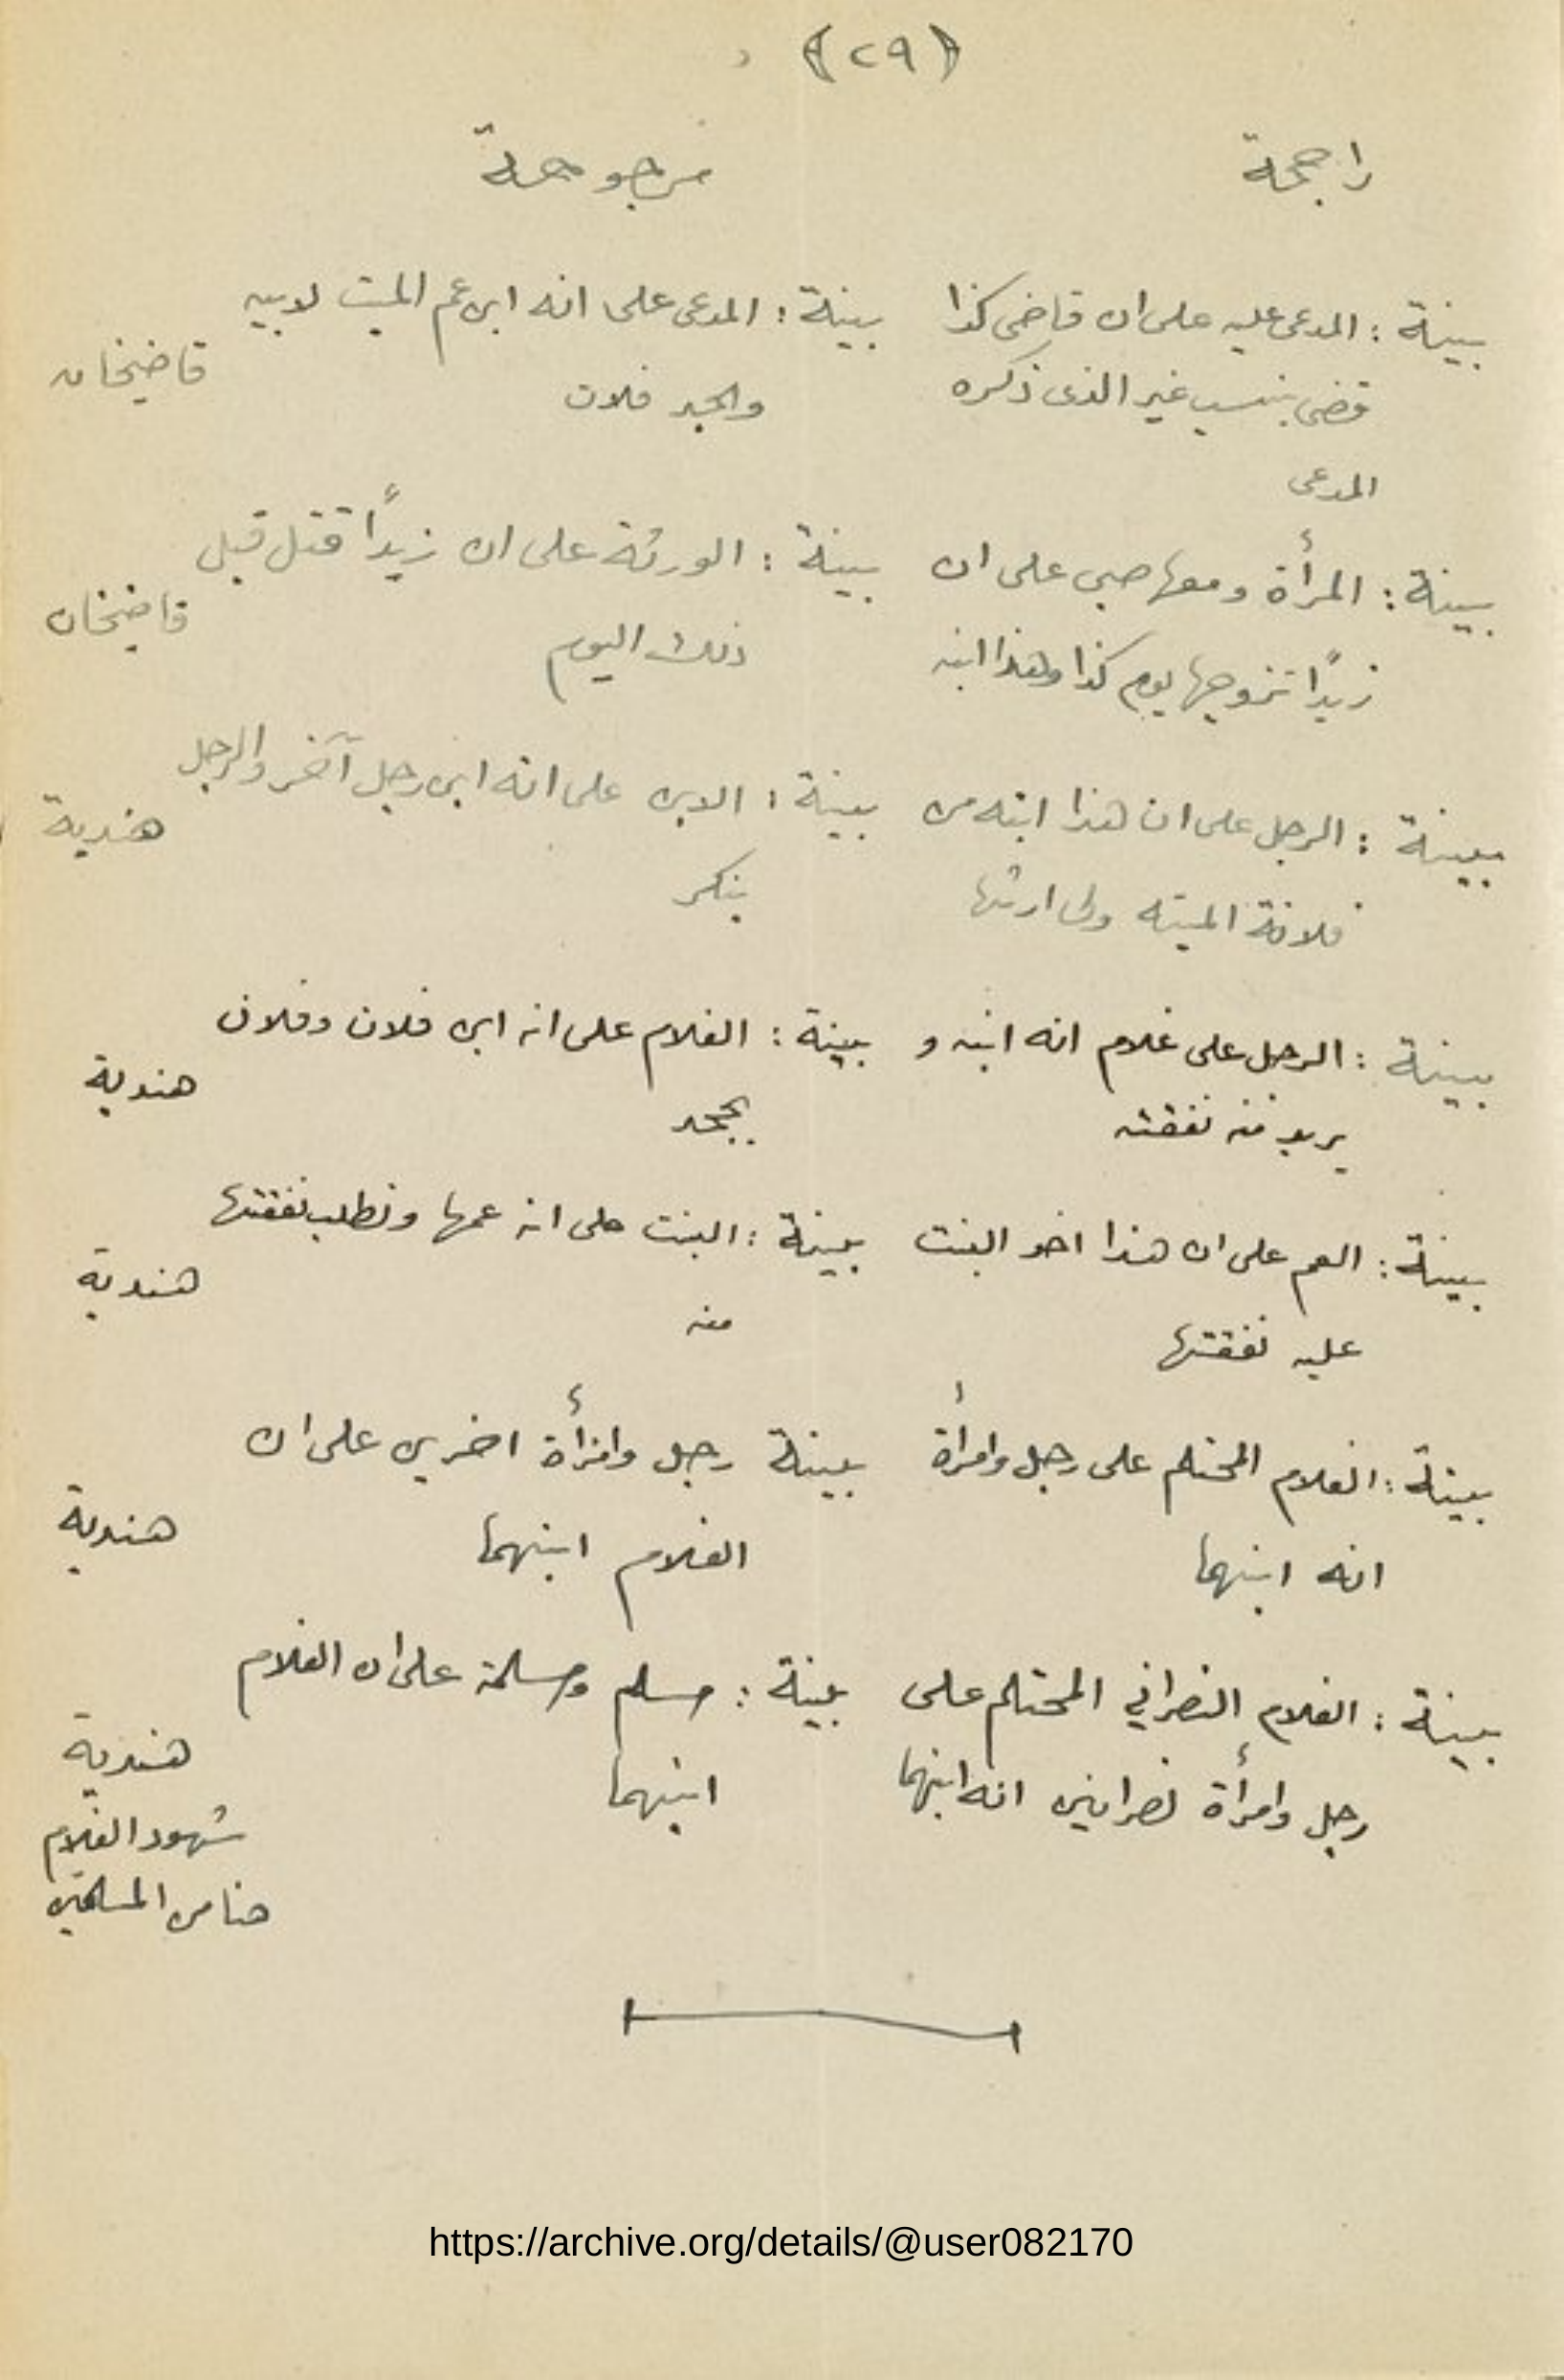 (٢٩)
راجحة
مرجوحة
بينة : المدعى عليه على ان قاضى كذا
قضى بنسب غير الذى ذكره
المدعى
بينة : المدعى على انه ابن عم الميت لابيه
والجد فلان
قاضيخان
بينة : المرأة ومعها صبى على ان
زيدًا تزوجها يوم كذا وهذا ابنه
بينة : الورثة على ان زيدًا قتل قبل
ذلك اليوم
قاضيخان
بينة : الرجل على ان هذا ابنه من
فلانة الميتة ولى ارثها
بينة : الابن على انه ابن رجل آخر والرجل
ينكر
هندية
بينة : الرجل على غلام انه ابنه و
يريد منه نفقته
بينة : الغلام على انه ابن فلان وفلان
يجحد
هندية
بينة : العم على ان هذا اخو البنت
عليه نفقتها
بينة : البنت على انه عمها وتطلب نفقتها
منه
هندية
بينة : الغلام المحتلم على رجل وامرأة
انه ابنهما
بينة رجل وامرأة اخرين على ان
الغلام ابنهما
هندية
بينة : الغلام النصراني المحتلم على
رجل وامرأة نصرانيين انه ابنهما
بينة : مسلم ومسلمة على ان الغلام
ابنهما
هندية
شهود الغلام
هنا من المسلمين
https://archive.org/details/@user082170